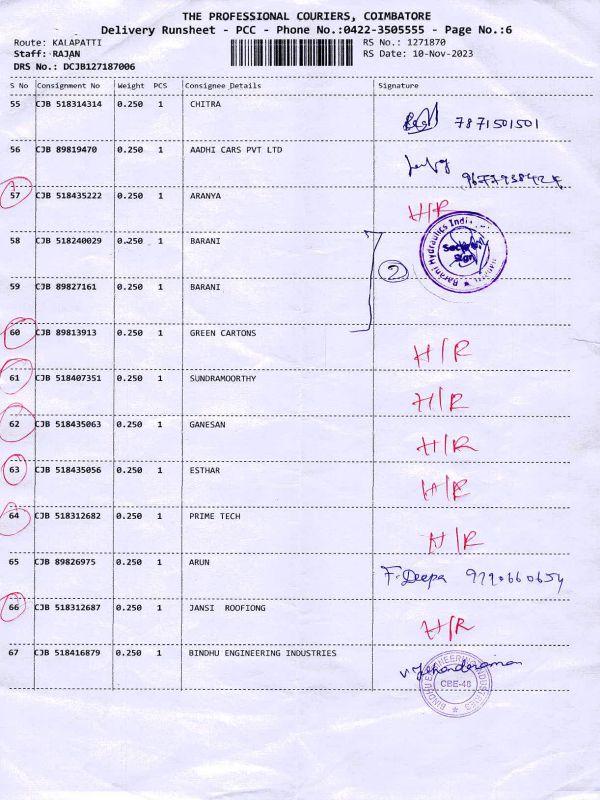 THE PROFESSIONAL COURIERS, COIMBATORE
Delivery Runsheet - PCC - Phone No.:0422-3505555 - Page No.:6
Route: KALAPATTI RS No.: 1271870
Staff: RAJAN RS Date: 10-Nov-2023
DRS No.: DCJB127187006
S No Consignment No Weight PCS Consignee Details Signature
55 CJB 518314314 0.250 1 CHITRA
7871501501
56 CJB 89819470 0.250 1 AADHI CARS PVT LTD
57 CJB 518435222 0.250 1 ARANYA H/R
58 CJB 518240029 0.250 1 BARANI
2
Barani Hydraulics Indi
59 CJB 89827161 0.250 1 BARANI
60 CJB 89813913 0.250 1 GREEN CARTONS
H/R
61 CJB 518407351 0.250 1 SUNDRAMOORTHY
H/R
62 CJB 518435063 0.250 1 GANESAN
H/R
63 CJB 518435056 0.250 1 ESTHAR
H/R
64 CJB 518312682 0.250 1 PRIME TECH
H/R
65 CJB 89826975 0.250 1 ARUN
F. Deepa 9790660654
66 CJB 518312687 0.250 1 JANSI ROOFIONG
H/R
67 CJB 518416879 0.250 1 BINDHU ENGINEERING INDUSTRIES
BINDHU ENGINEERING INDUSTRIES
CBE-48